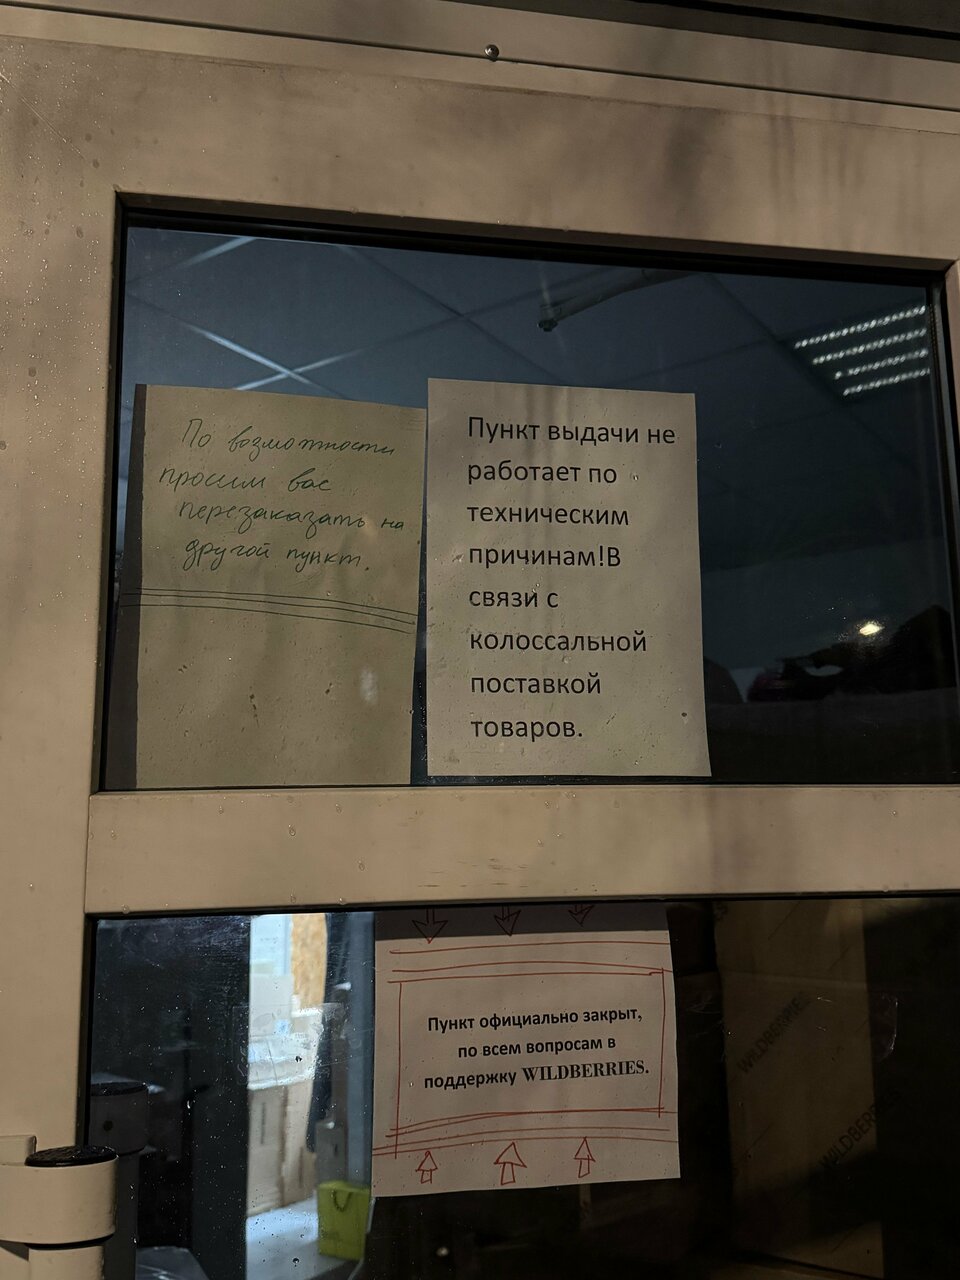 По возможности
просим вас
перезаказать на
другой пункт.
Пункт выдачи не
работает по
техническим
причинам!В
связи с
колоссальной
поставкой
товаров.
Пункт официально закрыт,
по всем вопросам в
поддержку WILDBERRIES.
WILDBERRIES
WILDBERRIES